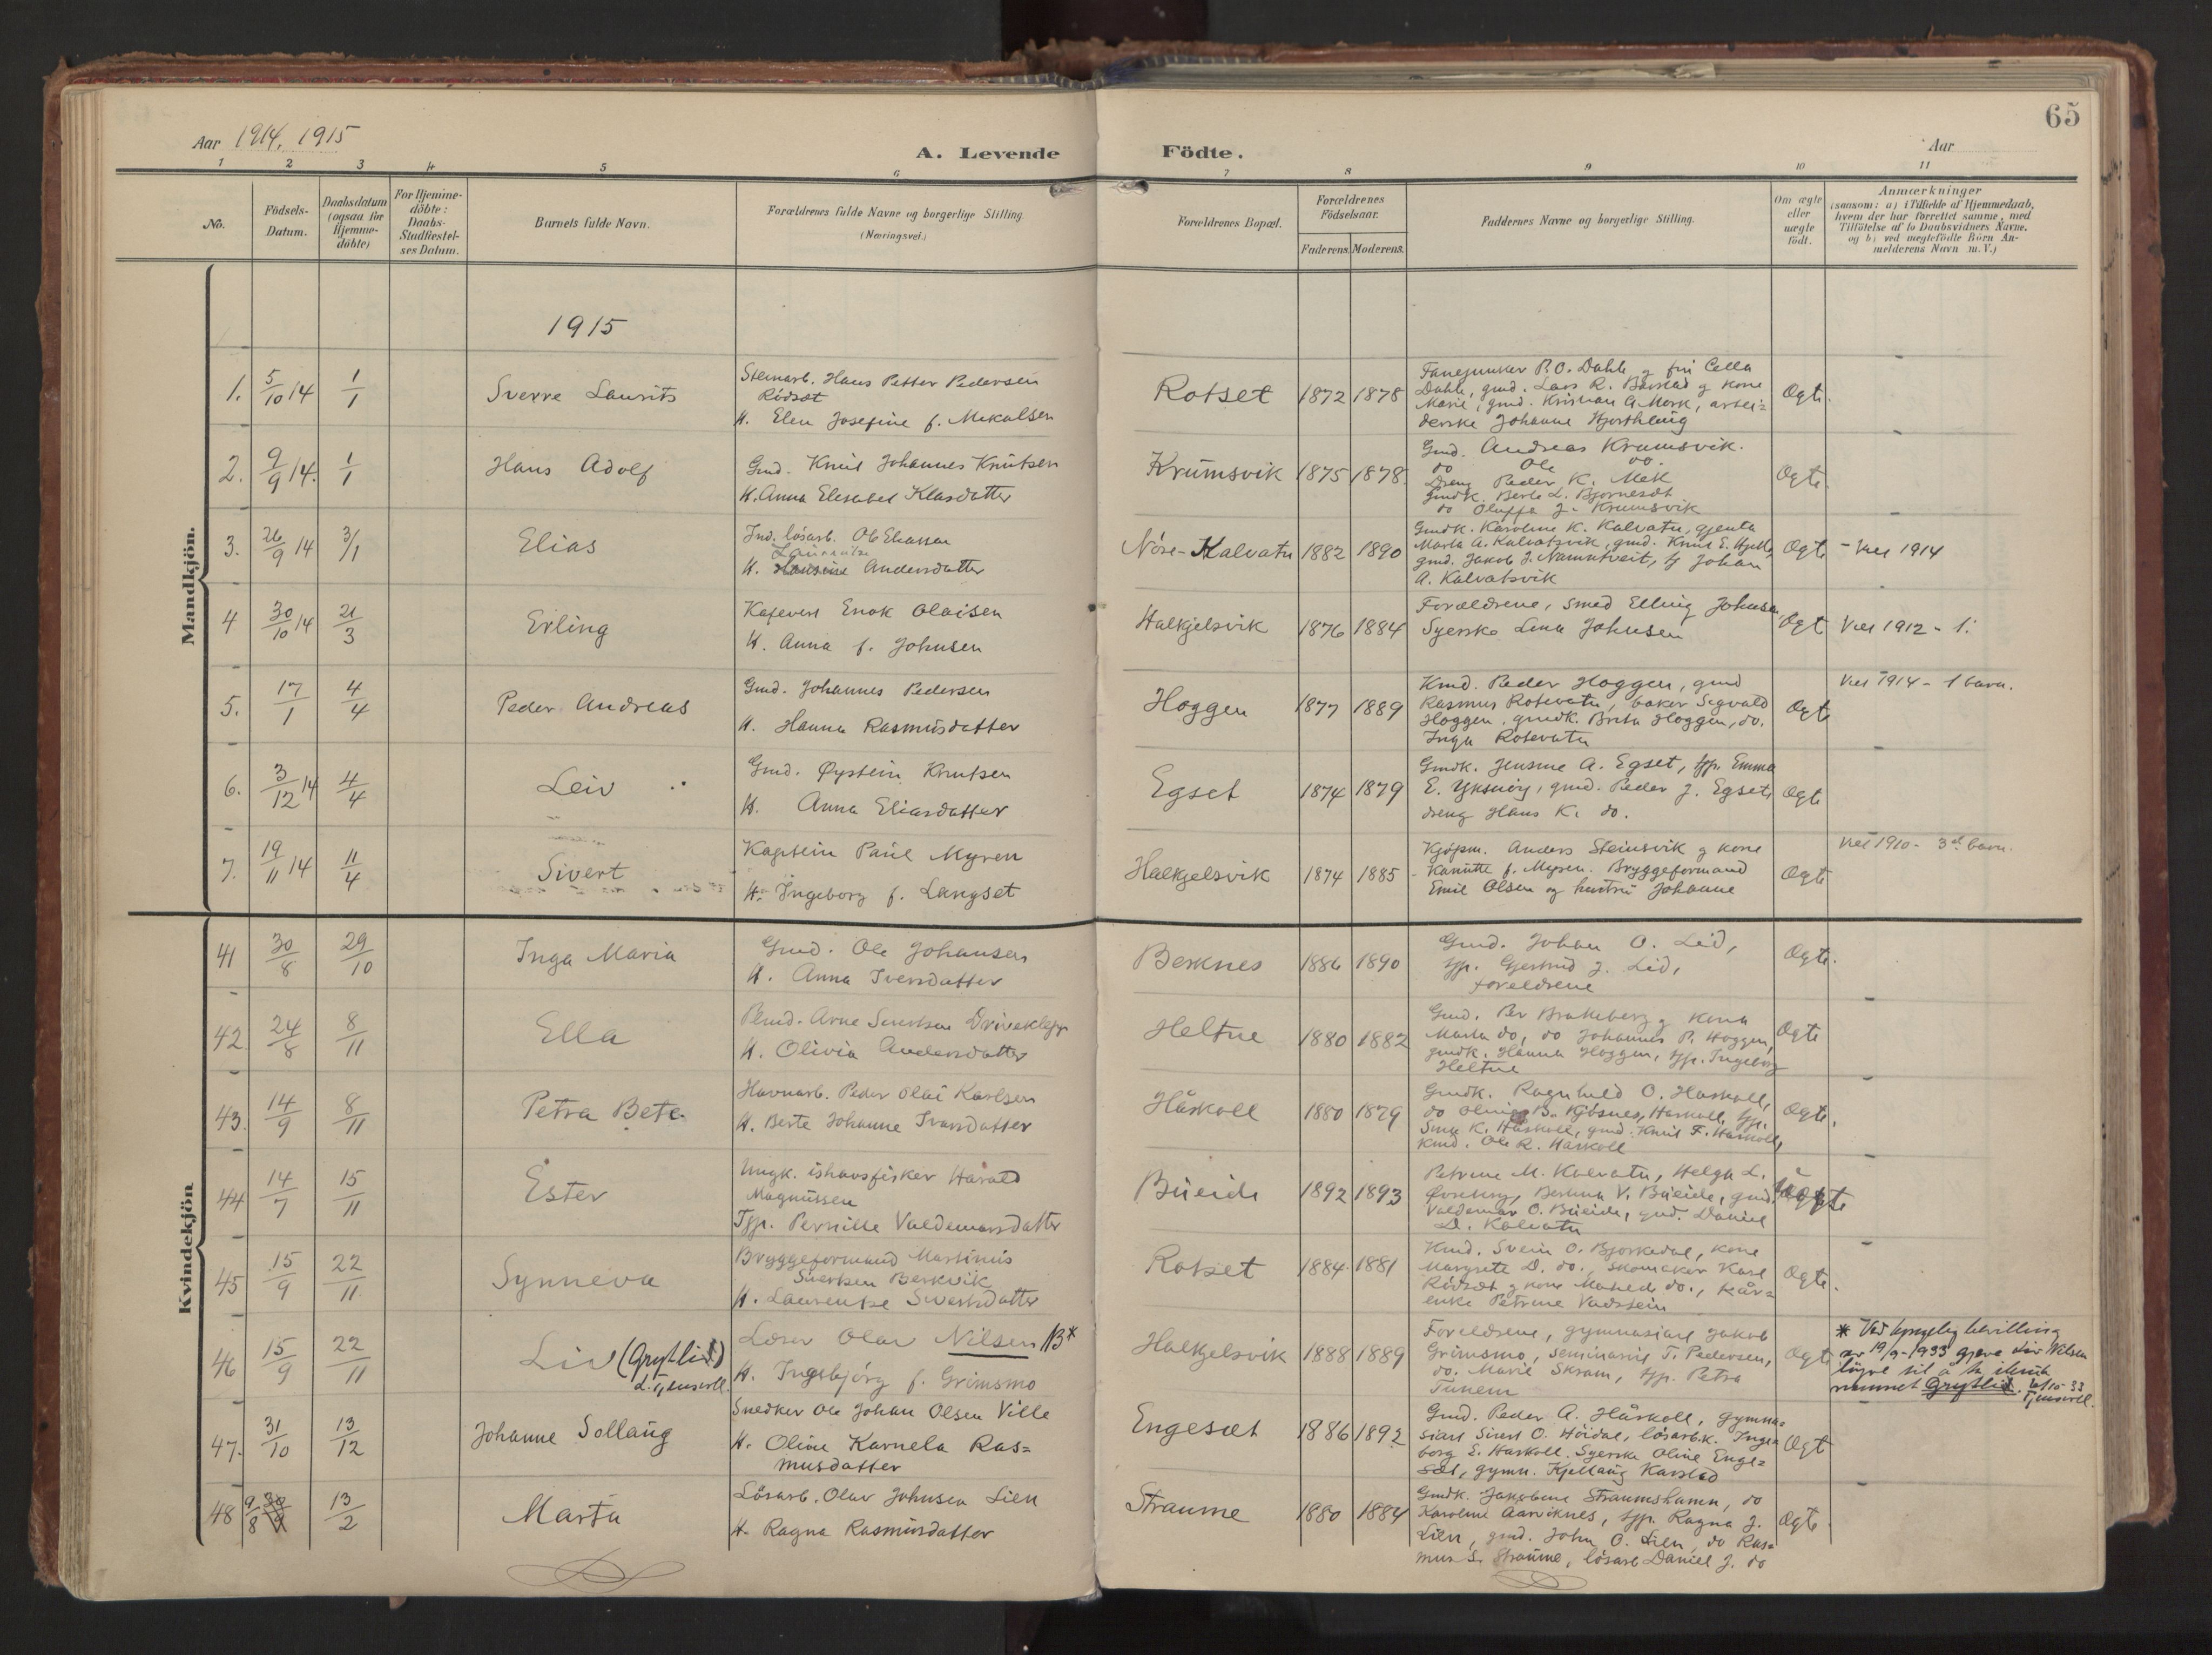 65
Aar 1914, 1915
A. Levende Födte.
Aar
1 2 3 4 5 6 7 8 9 10 11
No.
Födsels-
Datum.
Daabsdatum
(ogsaa for
Hjemme-
döbte)
For Hjemme-
döbte:
Daabs-
Stadfæstel-
ses Datum.
Barnets fulde Navn.
Forældrenes fulde Navne og borgerlige Stilling
(Næringsvei.)
Forældrenes Bopæl.
Forældrenes
Födselsaar.
Faderens. Moderens.
Faddernes Navne og borgerlige Stilling.
Om ægte
eller
uægte
födt.
Anmærkninger
(saasom: a) i Tilfælde af Hjemmedaab,
hvem der har forrettet samme, med
Tilföielse af to Daabsvidners Navne.
og b) ved uægtefödte Börn An-
melderens Navn m. V.)
Mandkjön.
1915
1. 5/10 14 1/1 Sverre Laurits
Stenarb. Hans Petter Pedersen
Rödsæt
H. Elen Josefine f. Mekalsen
Rotset 1872 1878
Fanejunker P.O. Dahle og fru Cella
Dahle, gmd. Lars R. Barstad og kone
Marie, gmd. Kristian A. Mork, arbei=
derske Johanne Hjorthaug
Ogte.
2. 9/9 14. 1/1 Hans Adolf
Gmd. Knut Johannes Knutsen
H. Anna Elesabet Klasdatter
Krumsvik 1875 1878.
Gmd. Andreas Krumsvik.
do Ole do.
Dreng Peder K. Mek
Gmdk. Berte L. Bjørnesæt
do Oluffa J. Krumsvik
Ogte.
3. 26/9 14 3/1 Elias
Ind. lösarb. Ole Eliassen
Laurentse
H. Andersdatter
Nöre-Kalvatn 1882 1890
Gmdk. Karoline K. Kalvatn, gjenta
Marta A. Kalvatsvik, gmd. Knut E. Hjelle,
gmd. Jakob J. Navmtveit, Johan
A. Kalvatsvik
Ogte - Viet 1914
4 30/10 14 21/3 Erling
Kafevert Enok Olaisen
H. Anna f. Johnsen
Halkjelsvik 1876 1884
Forældrene, smed Elling Johnsen
Syerske Lina Johnsen
Ogte Viet 1912 - 1.
5. 17/1 4/4 Peder Andreas
Gmd. Johannes Pedersen
H. Hanna Rasmusdatter
Hoggen 1877 1889
Kmd. Peder Hoggen, gmd
Rasmus Rotevatn, baker Sigvald
Hoggen, gmdk. Brita Hoggen, do.
Inga Rotevatn
Ogte
Viet 1914 - 1 barn.
6. 3/12 14 4/4 Leiv
Gmd. Øystein Knutsen
H. Anna Eliasdatter
Egset 1874 1879
Gmdk. Jensine A. Egset, tjp. Emma
E. Yksnøy, gmd. Peder J. Egset,
dreng Hans K. do.
Ogte
7. 19/11 14 11/4 Sivert
Kaptein Paul Myren
H. Ingeborg f. Langset
Halkjelsvik 1874 1885
Kjøpm. Anders Steinsvik og kone
Kanutte f. Myren. Bryggeformand
Emil Olsen og hustru Johanne
Ogte
Viet 1910 - 3die barn.
Kvindekjön
41 30/8 29/10 Inga Maria
Gmd. Ole Johansen
H. Anna Iversdatter
Berknes 1886 1890
Gmd. Johan O. Lid,
tjp. Gjertrud J. Lid,
foreldrene
Ogte.
42. 24/8 8/11 Ella
Arne Sivertsen Driveklepp
H. Olivia Andersdatter
Heltne 1880 1882
Gmd. Per Brakeberg og kona
Marta do, do Johannes P. Hoggen,
gmdk. Hanna Hoggen, tjp. Ingeborg
Heltne
Ogte
43. 14/9 8/11 Petra Bete.
Havnarb. Peder Olai Karlsen
H. Berte Johanne Ivarsdatter
Håskoll 1880 1879
Gmdk. Ragnhild O. Haskoll,
do B. Kjösnes, Haskoll, tjp.
K. Håskoll, gmd. Knut F. Haskoll,
kmd. Ole R. Håskoll
Ogte.
44 14/7 15/11 Ester
Ungk. ishavsfisker Harald
Magnussen
Tjp. Pernille Valdemarsdatter
Bueide 1892 1893
Petrine M. Kalvatn, Helga L.
Øvreberg, Berlina V. Bueide, gmd.
Valdemar O. Bueide, gmd. Daniel
D. Kalvatn
Uægte
45 15/9 22/11 Synneva
Bryggeformand Martinus
Sivertsen Berkvik
H. Laurentse Sivertsdatter
Rotset 1884. 1881
Kmd. Svein O. Bjørkedal, kone
Margrete D. do., skomaker Karl
Rödset og kone Mathede do., kår=
enke Petrine Vadstein
Ogte.
46 15/9 22/11 Liv (Grytlid)
L. Tjensvoll.
Lærer Olav Nilsen NB*
H. Ingebjörg f. Grimsmo
Halkjelsvik 1888 1889
Foreldrene, gymnasiast Jakob
Grimsmo, seminarist T. Pedersen,
do. Marie Skram, tjp. Petra
Tunem
Ogte
* Ved kongeleg bevilling
av 19/9-1933 gjeve Liv Nilsen
löyve til å ta
namnet Grytlid. 6/10-33
Tjensvoll.
47. 31/10 13/12 Johanne Sollaug
Snedker Ole Johan Olsen Ville
H. Oline Karnela Ras=
musdatter
Engesæt 1886 1892
Gmd. Peder A. Håskoll, gymna=
siast Sivert O. Höidal, lösarb.k. Inge=
borg E. Haskoll. Syerske Oline Enge=
sæt, gymn. Kjellaug Karstad
Ogt
48 9/8 13/2 Marta
Lösarb. Olav Johnsen Lien
H. Ragna Rasmusdatter
Straume 1880 1884
Gmdk. Jakobine Straumshamn, do
Karoline Aarviknes, tjp. Ragna J.
Lien, gmd. John O. Lien, do Ras=
mus S. Straume, lösarb Daniel J. do
Ogte.